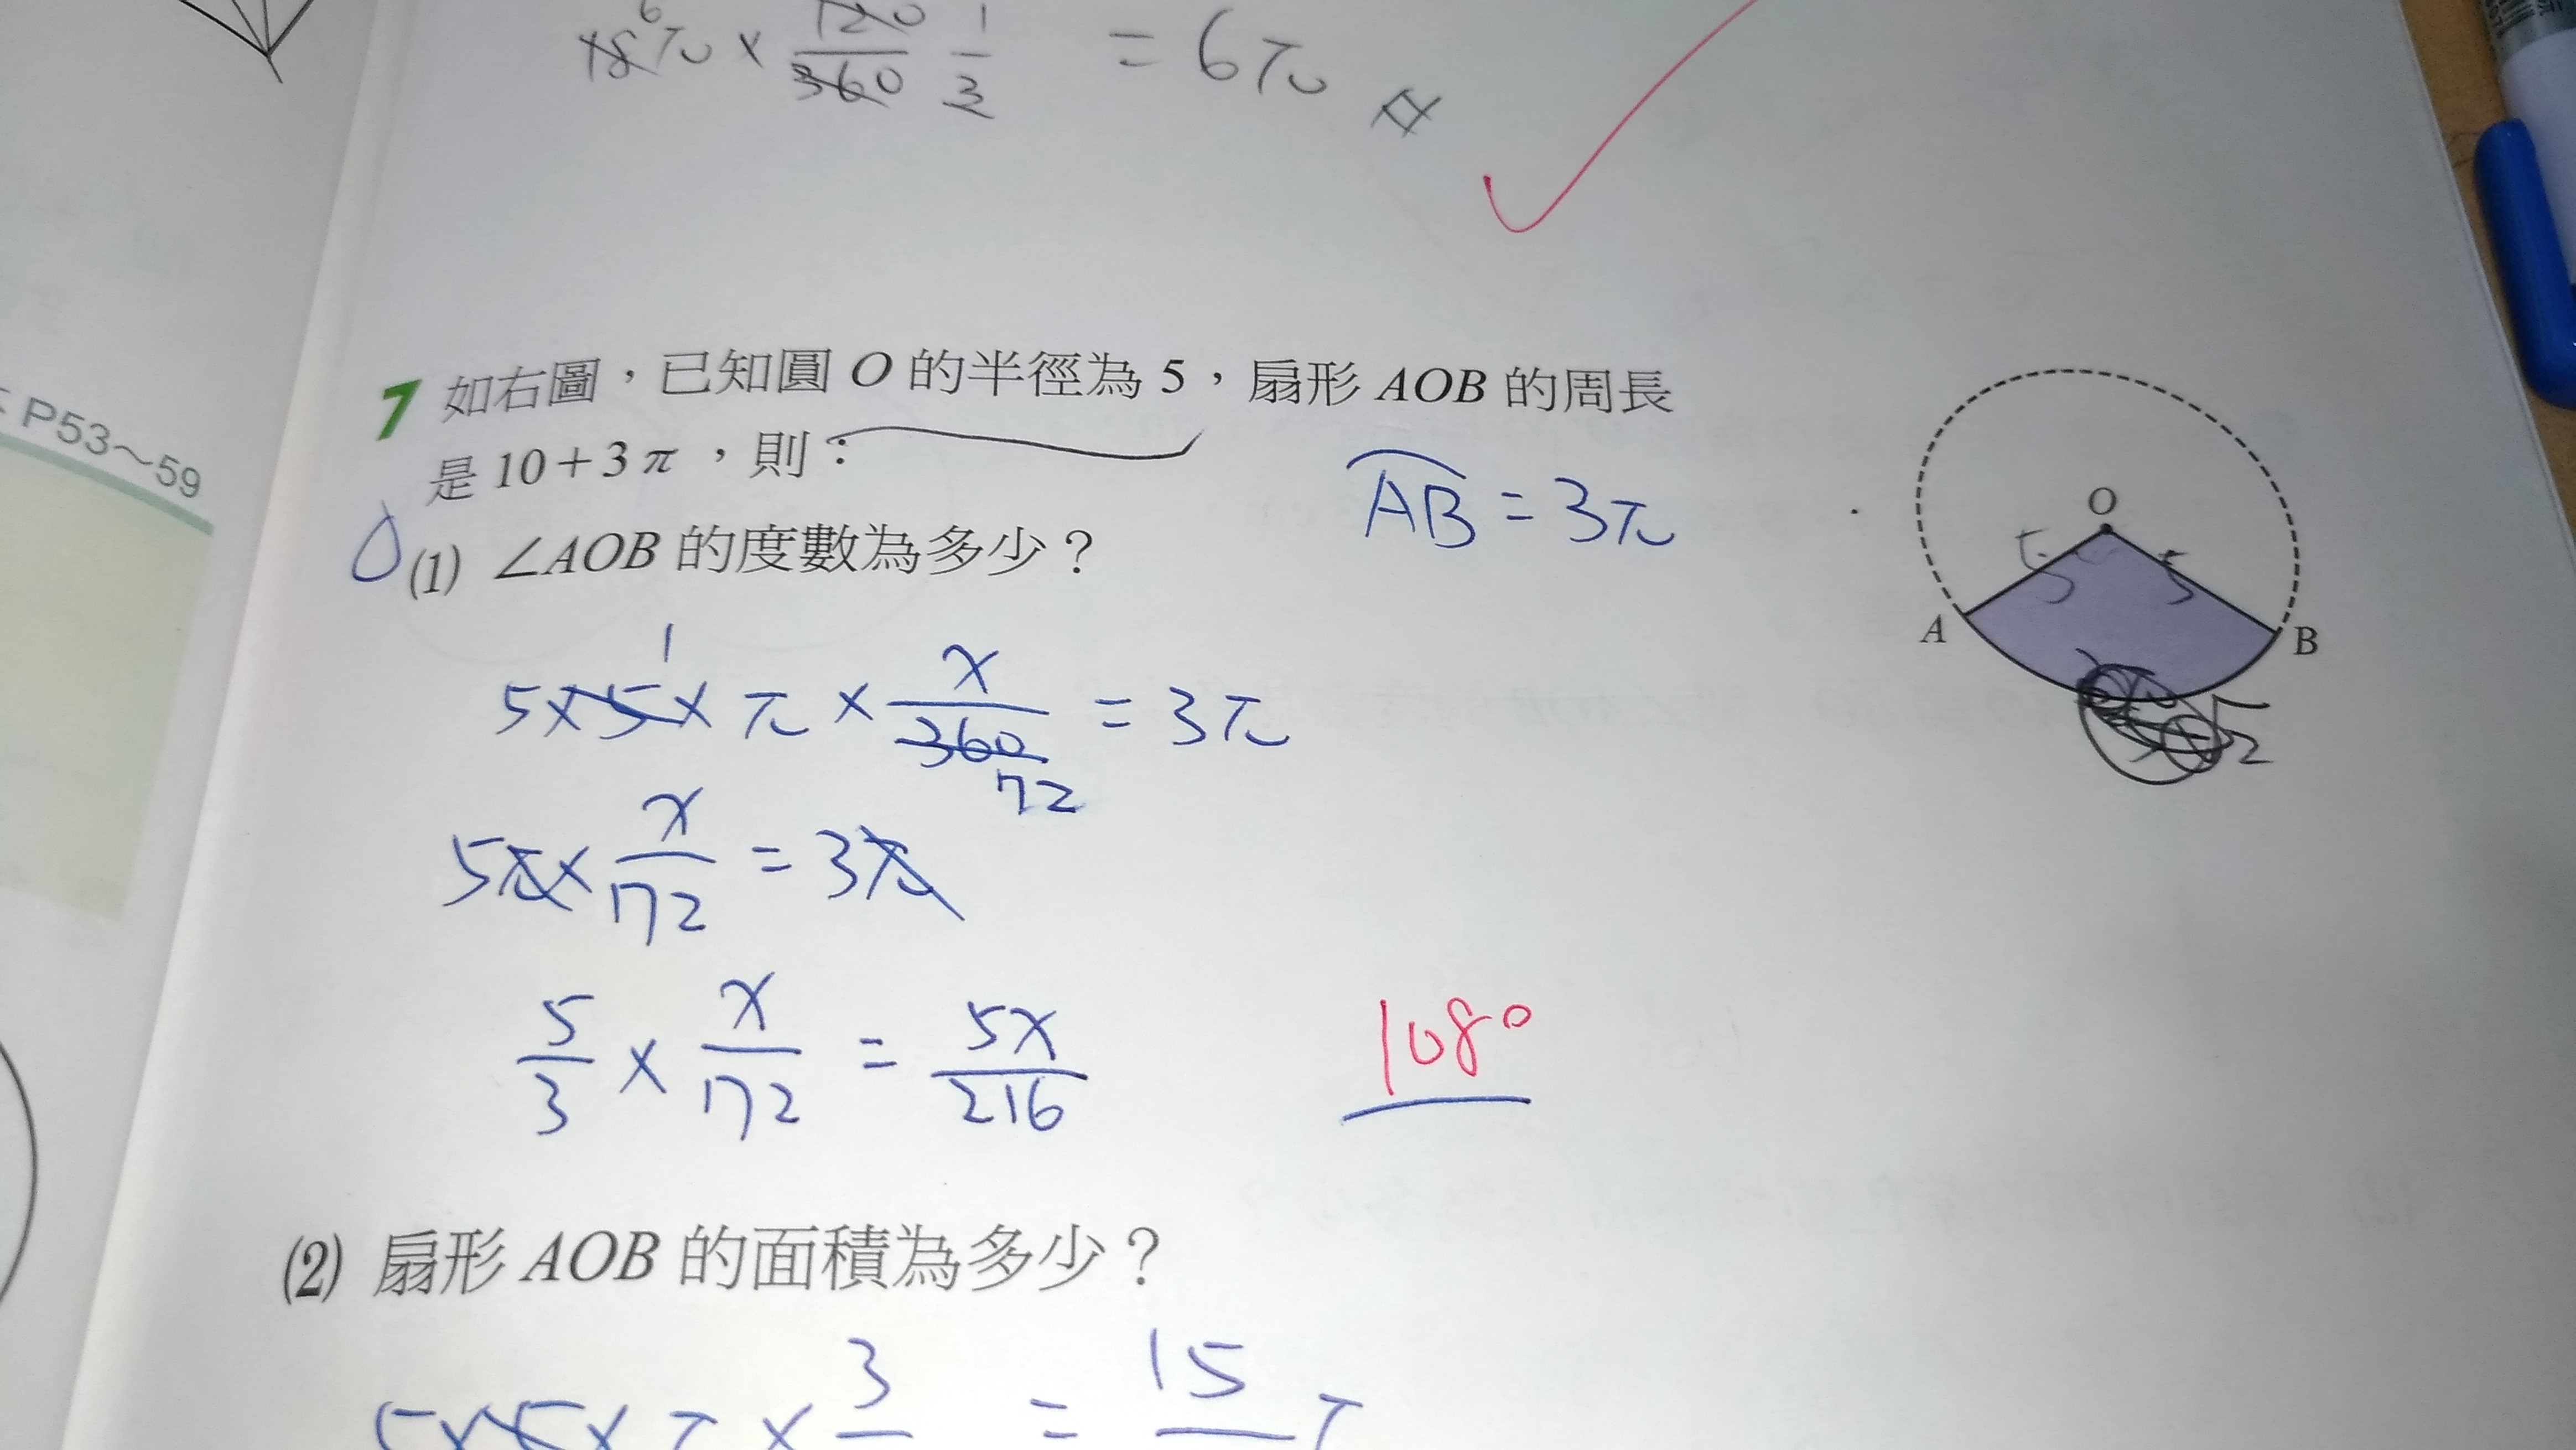 18 6 π × 120/360 1/3 = 6π #
P53～59
7 如右圖，已知圓 O 的半徑為 5，扇形 AOB 的周長
是 10+3π，則：
AB = 3π
(1) ∠AOB 的度數為多少？
O
5 5
A B
1
5×5×π×x/360 = 3π
72
5π×x/72 = 3π
5/3 × x/72 = 5x/216
108°
(2) 扇形 AOB 的面積為多少？
3 15
5×5×π× = π